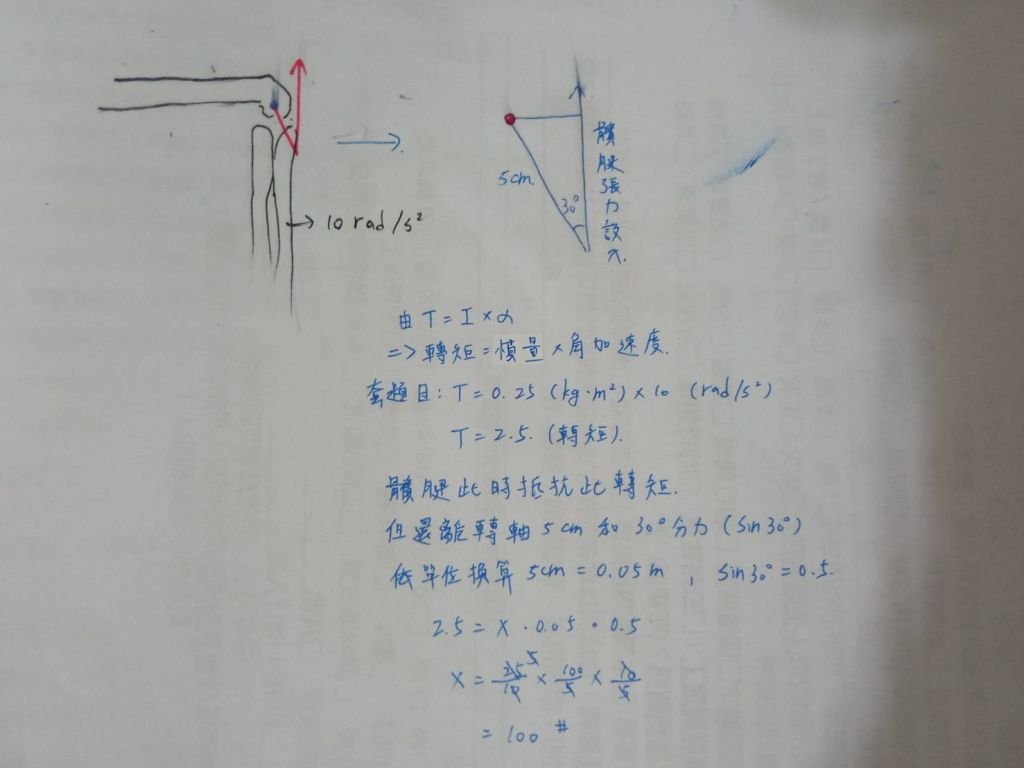 10 rad/s²
5cm
30°
髕腱張力設X.
由 T = I × α
=> 轉矩 = 慣量 × 角加速度.
套題目: T = 0.25 (kg·m²) × 10 (rad/s²)
T = 2.5. (轉矩).
髕腱此時抵抗此轉矩.
但還離轉軸 5 cm 和 30° 分力 (Sin 30°)
依單位換算 5cm = 0.05 m , Sin 30° = 0.5.
2.5 = X · 0.05 · 0.5
X = 25/10 × 100/5 × 10/5
5
= 100 #